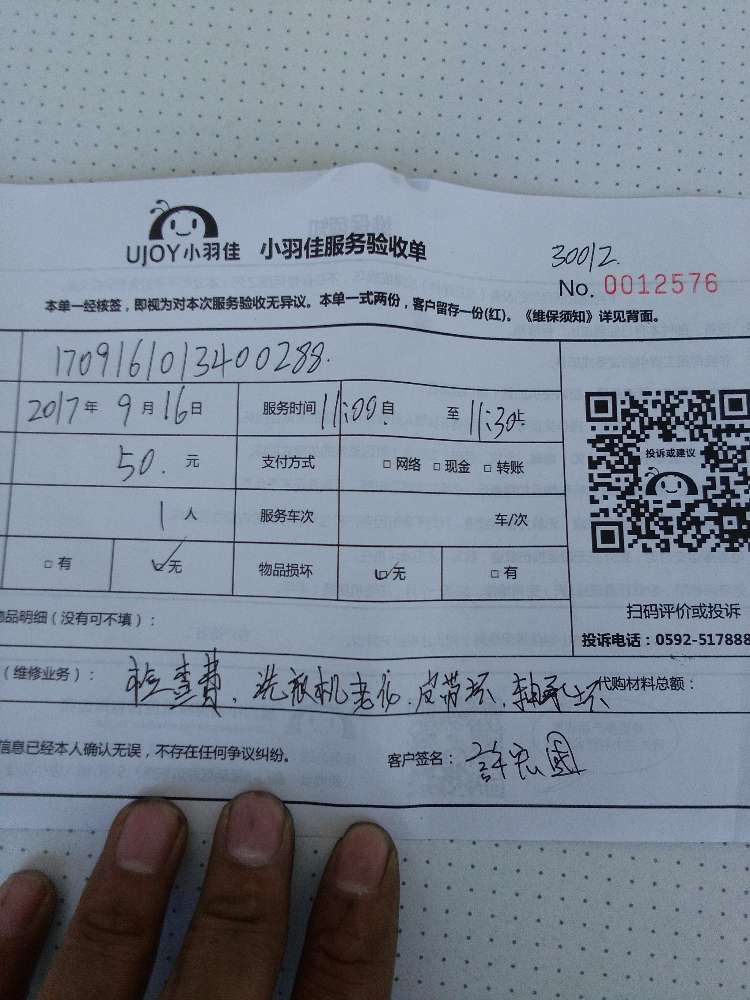 UJOY小羽佳 小羽佳服务验收单
30012
No. 0012576
本单一经核签，即视为对本次服务验收无异议。本单一式两份，客户留存一份(红)。《维保须知》详见背面。
1709161013400288.
2017年9月16日 服务时间 11:00自 至 11:30止
50.元 支付方式 □网络 □现金 □转账
1人 服务车次 车/次
□有 ☑无 物品损坏 ☑无 □有
投诉或建议
扫码评价或投诉
物品明细（没有可不填）：
投诉电话：0592-517888
（维修业务）： 检查费、洗衣机老化、皮带坏、轴承坏 代购材料总额：
信息已经本人确认无误，不存在任何争议纠纷。 客户签名：許宏國